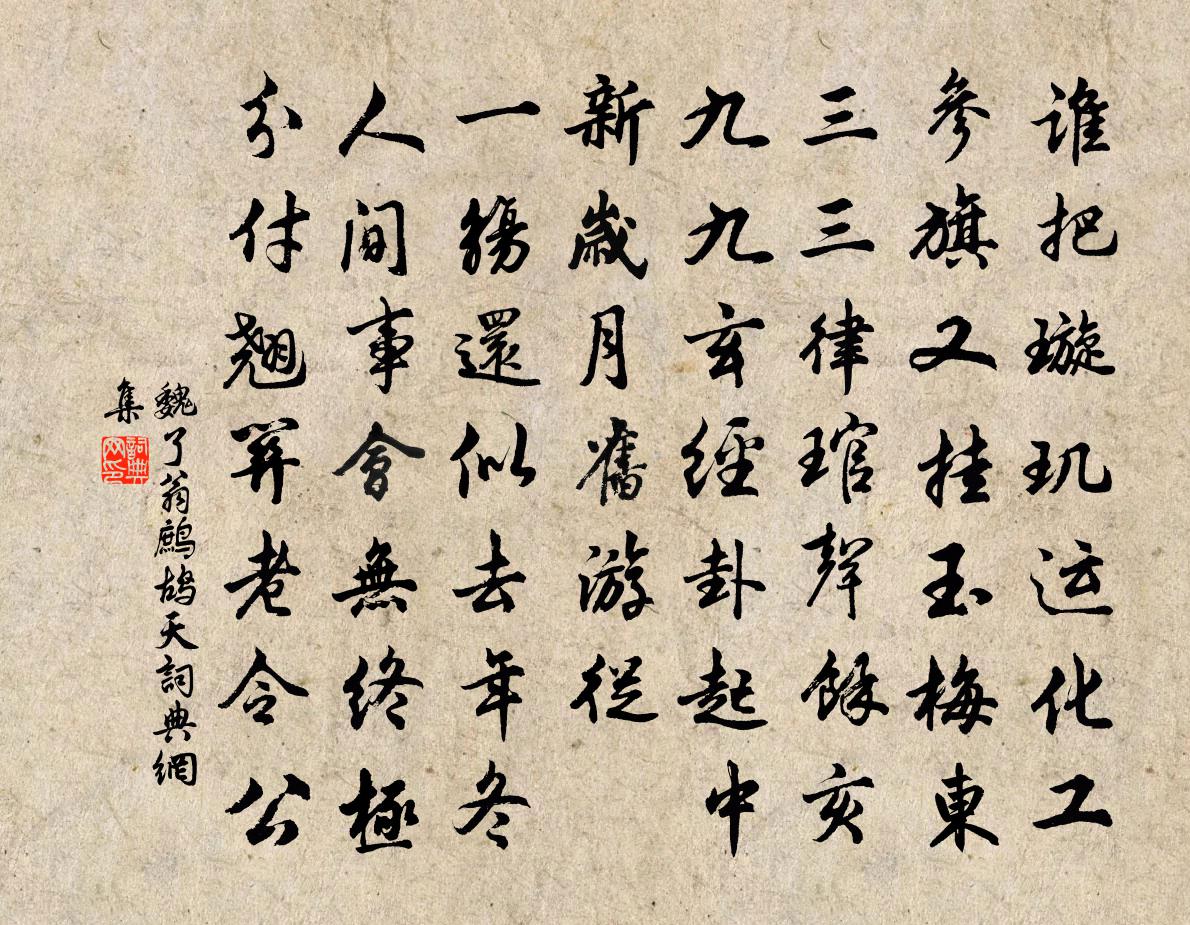 谁把璇玑运化工
參旗又挂玉梅東
三三律琯聲餘亥
九九玄經卦起中
新歲月舊游從
一觴還似去年冬
人間事會無終極
分付翹關老令公
魏了翁鷓鴣天詞典網
集
詞典网印